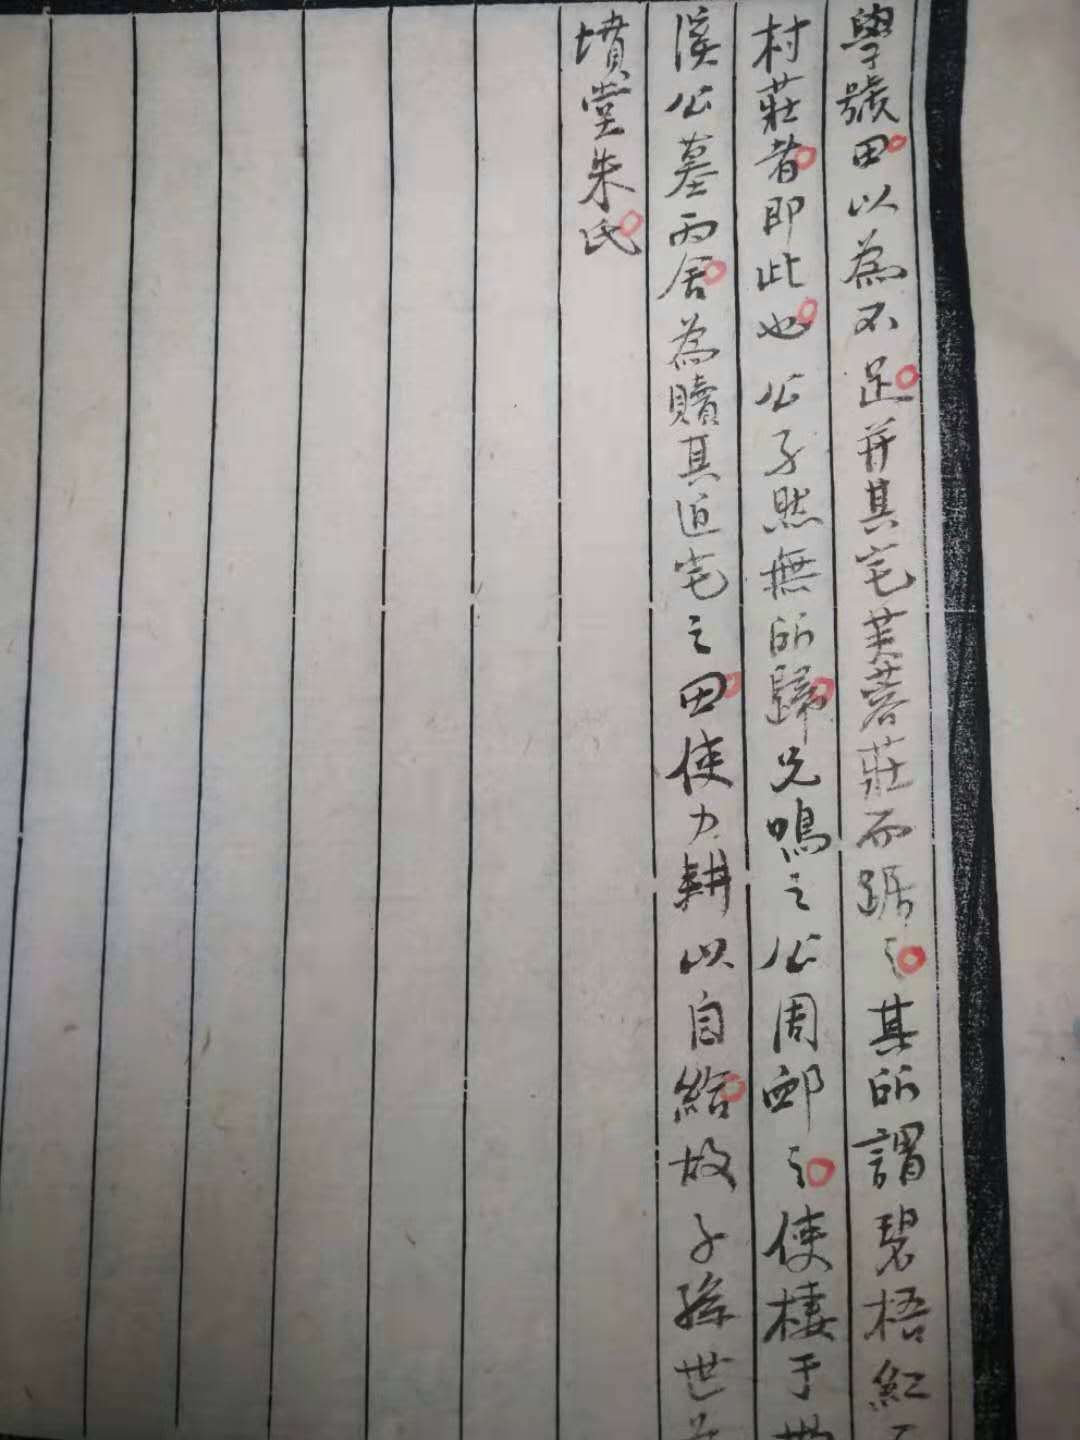 學號田以為不足并其宅芙蓉莊而踞之其所謂碧梧紅
村莊者即此也公孑然無所歸兄鳴之公周卹之使棲于
溪公墓丙舍為贖其近宅之田使力耕以自給故子孫世
墳堂朱氏